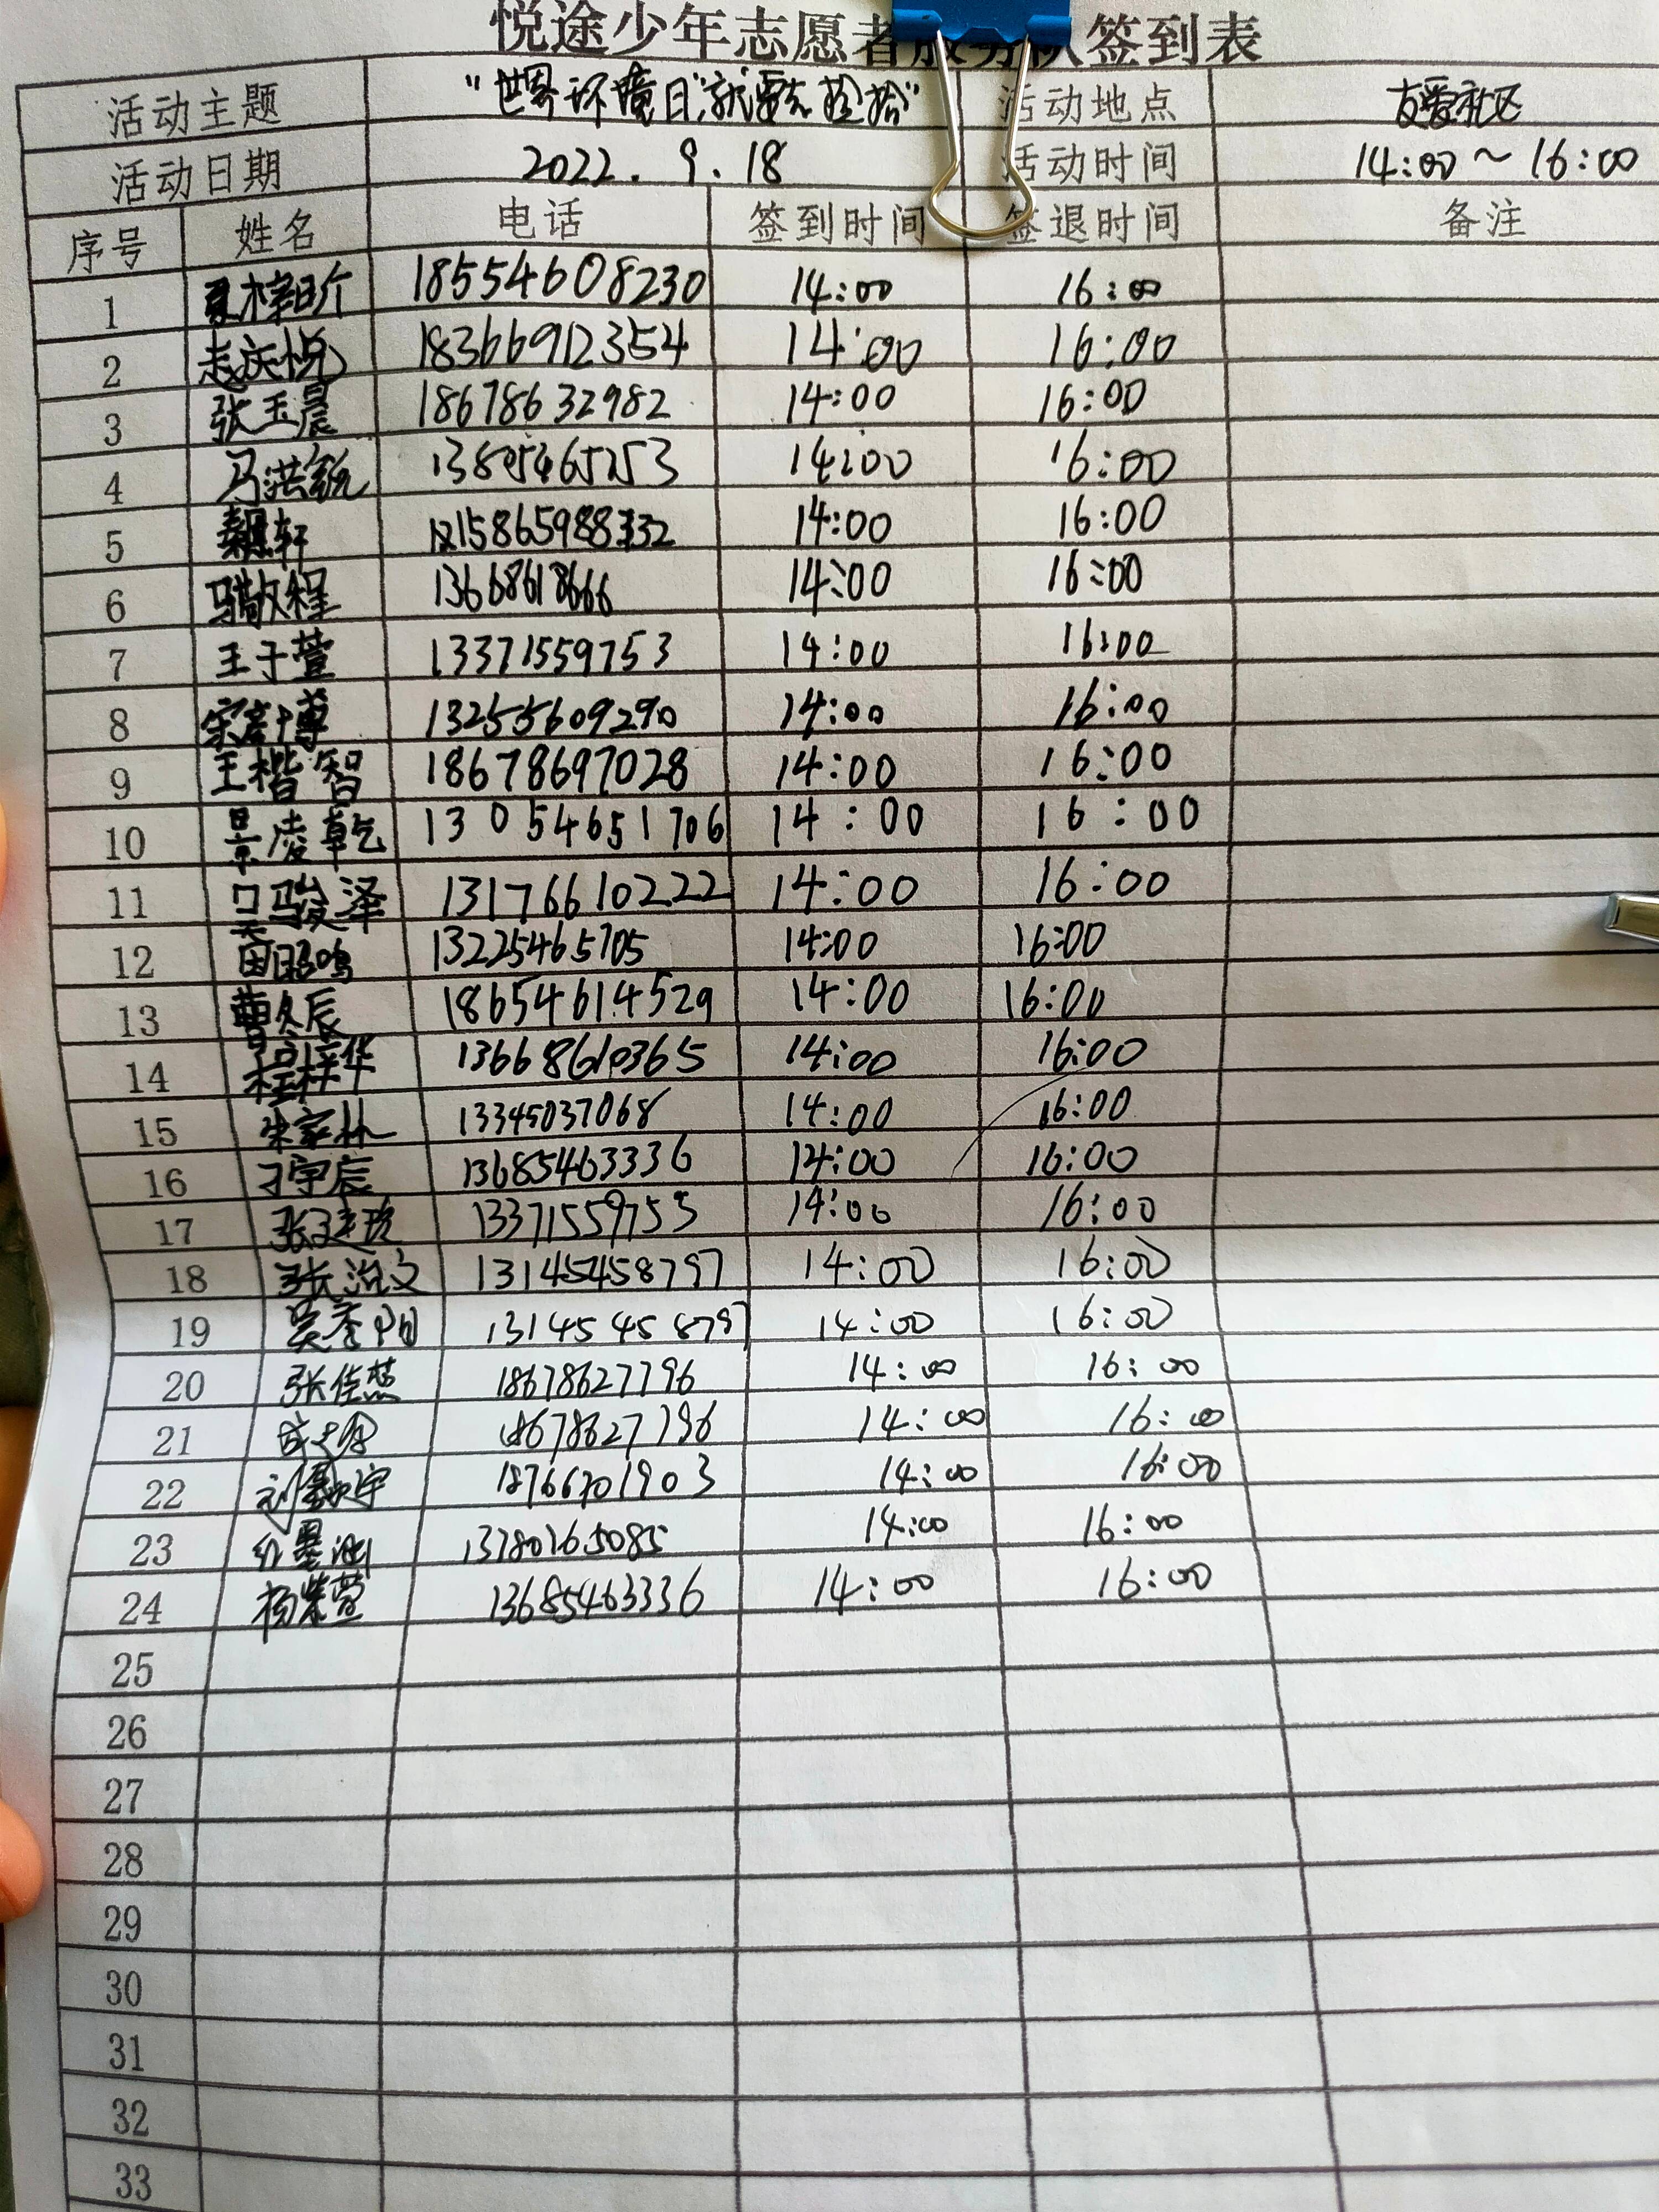 悦途少年志愿者服务队签到表
活动主题 "世界环境日"就要去捡拾" 活动地点 友爱社区
活动日期 2022.9.18 活动时间 14:00~16:00
序号 姓名 电话 签到时间 签退时间 备注
1 18554608230 14:00 16:00
2 18366912354 14:00 16:00
3 张玉晨 18678632982 14:00 16:00
4 14:00 16:00
5 14:00 16:00
6 马敬程 13668618666 14:00 16:00
7 王子萱 13371559753 14:00 16:00
8 宋彦博 13255609290 14:00 16:00
9 王楷智 18678697028 14:00 16:00
10 景凌乾 13054651706 14:00 16:00
11 吴骏泽 13176610222 14:00 16:00
12 田昭鸣 13225465705 14:00 16:00
13 曹久辰 18654614529 14:00 16:00
14 程梓华 13668610365 14:00 16:00
15 朱家林 13345037068 14:00 16:00
16 刁宇辰 13685463336 14:00 16:00
17 13371559753 14:00 16:00
18 13145458797 14:00 16:00
19 吴秀阳 13145458797 14:00 16:00
20 张佳慧 18678627796 14:00 16:00
21 18678627796 14:00 16:00
22 14:00 16:00
23 14:00 16:00
24 杨紫萱 13685463336 14:00 16:00
25
26
27
28
29
30
31
32
33